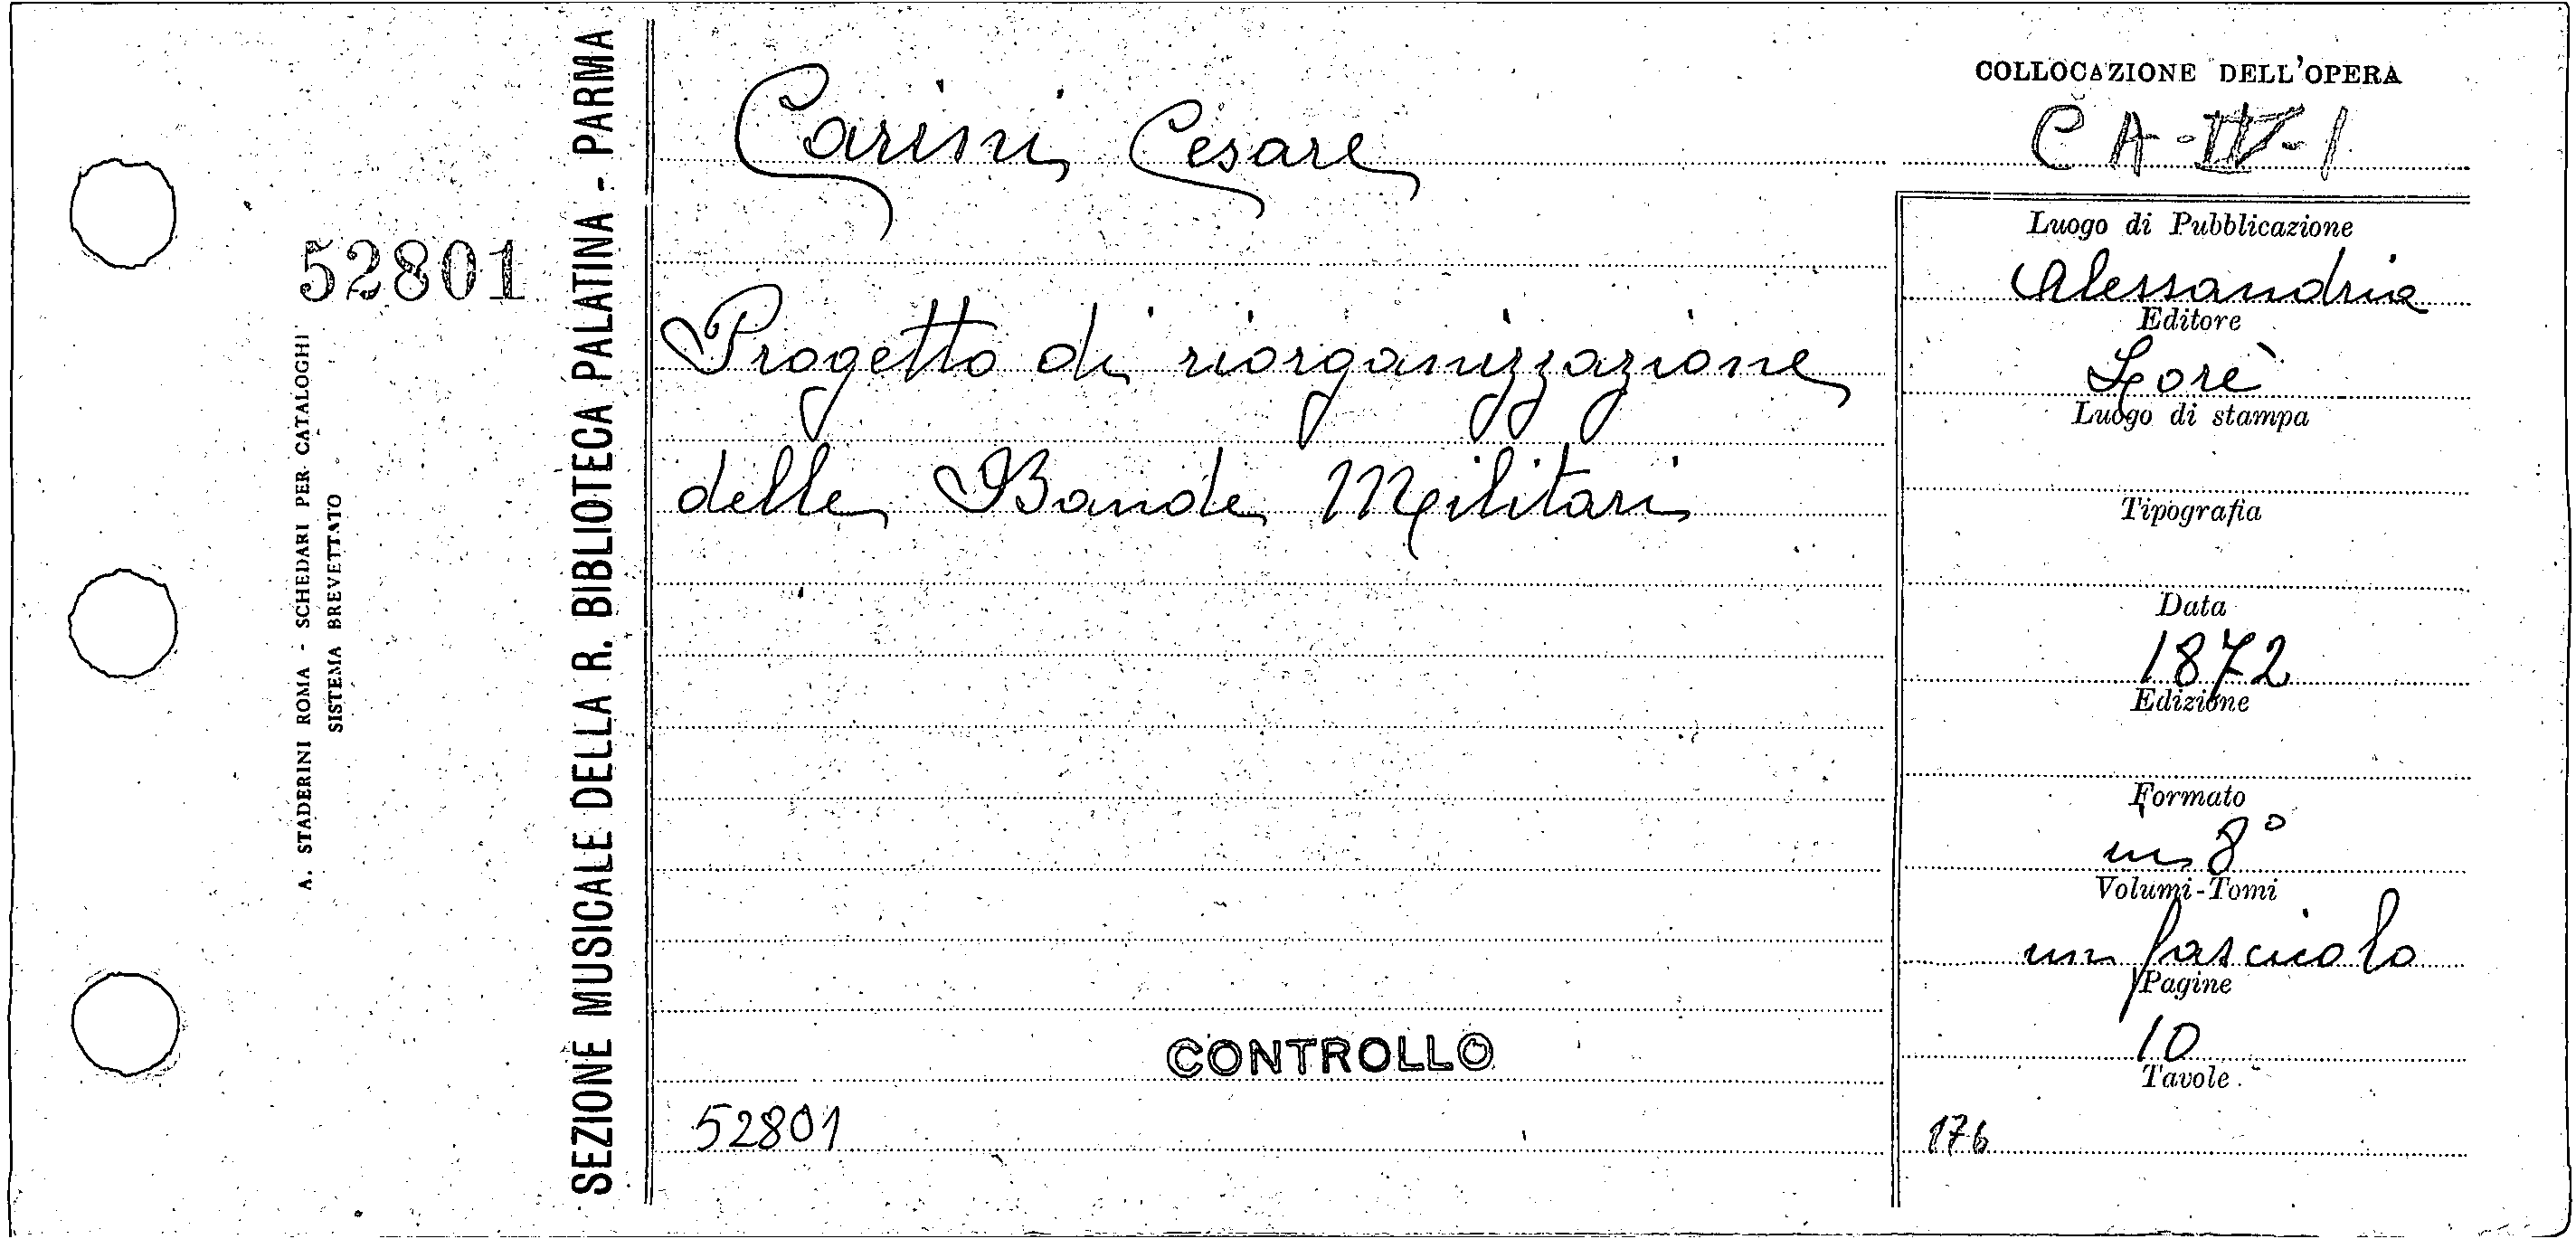 52801
A. STADERINI ROMA - SCHEDARI PER CATALOGHI
SISTEMA BREVETTATO
SEZIONE MUSICALE DELLA R. BIBLIOTECA PALATINA - PARMA
Carini Cesare
Progetto di riorganizzazione
delle Bande Militari
CONTROLLO
52801
COLLOCAZIONE DELL'OPERA
CA-IV-1
Luogo di Pubblicazione
Alessandria
Editore
Luogo di stampa
Tipografia
Data
1872
Edizione
Formato
in 8°
Volumi-Tomi
un fascicolo
Pagine
10
Tavole
176